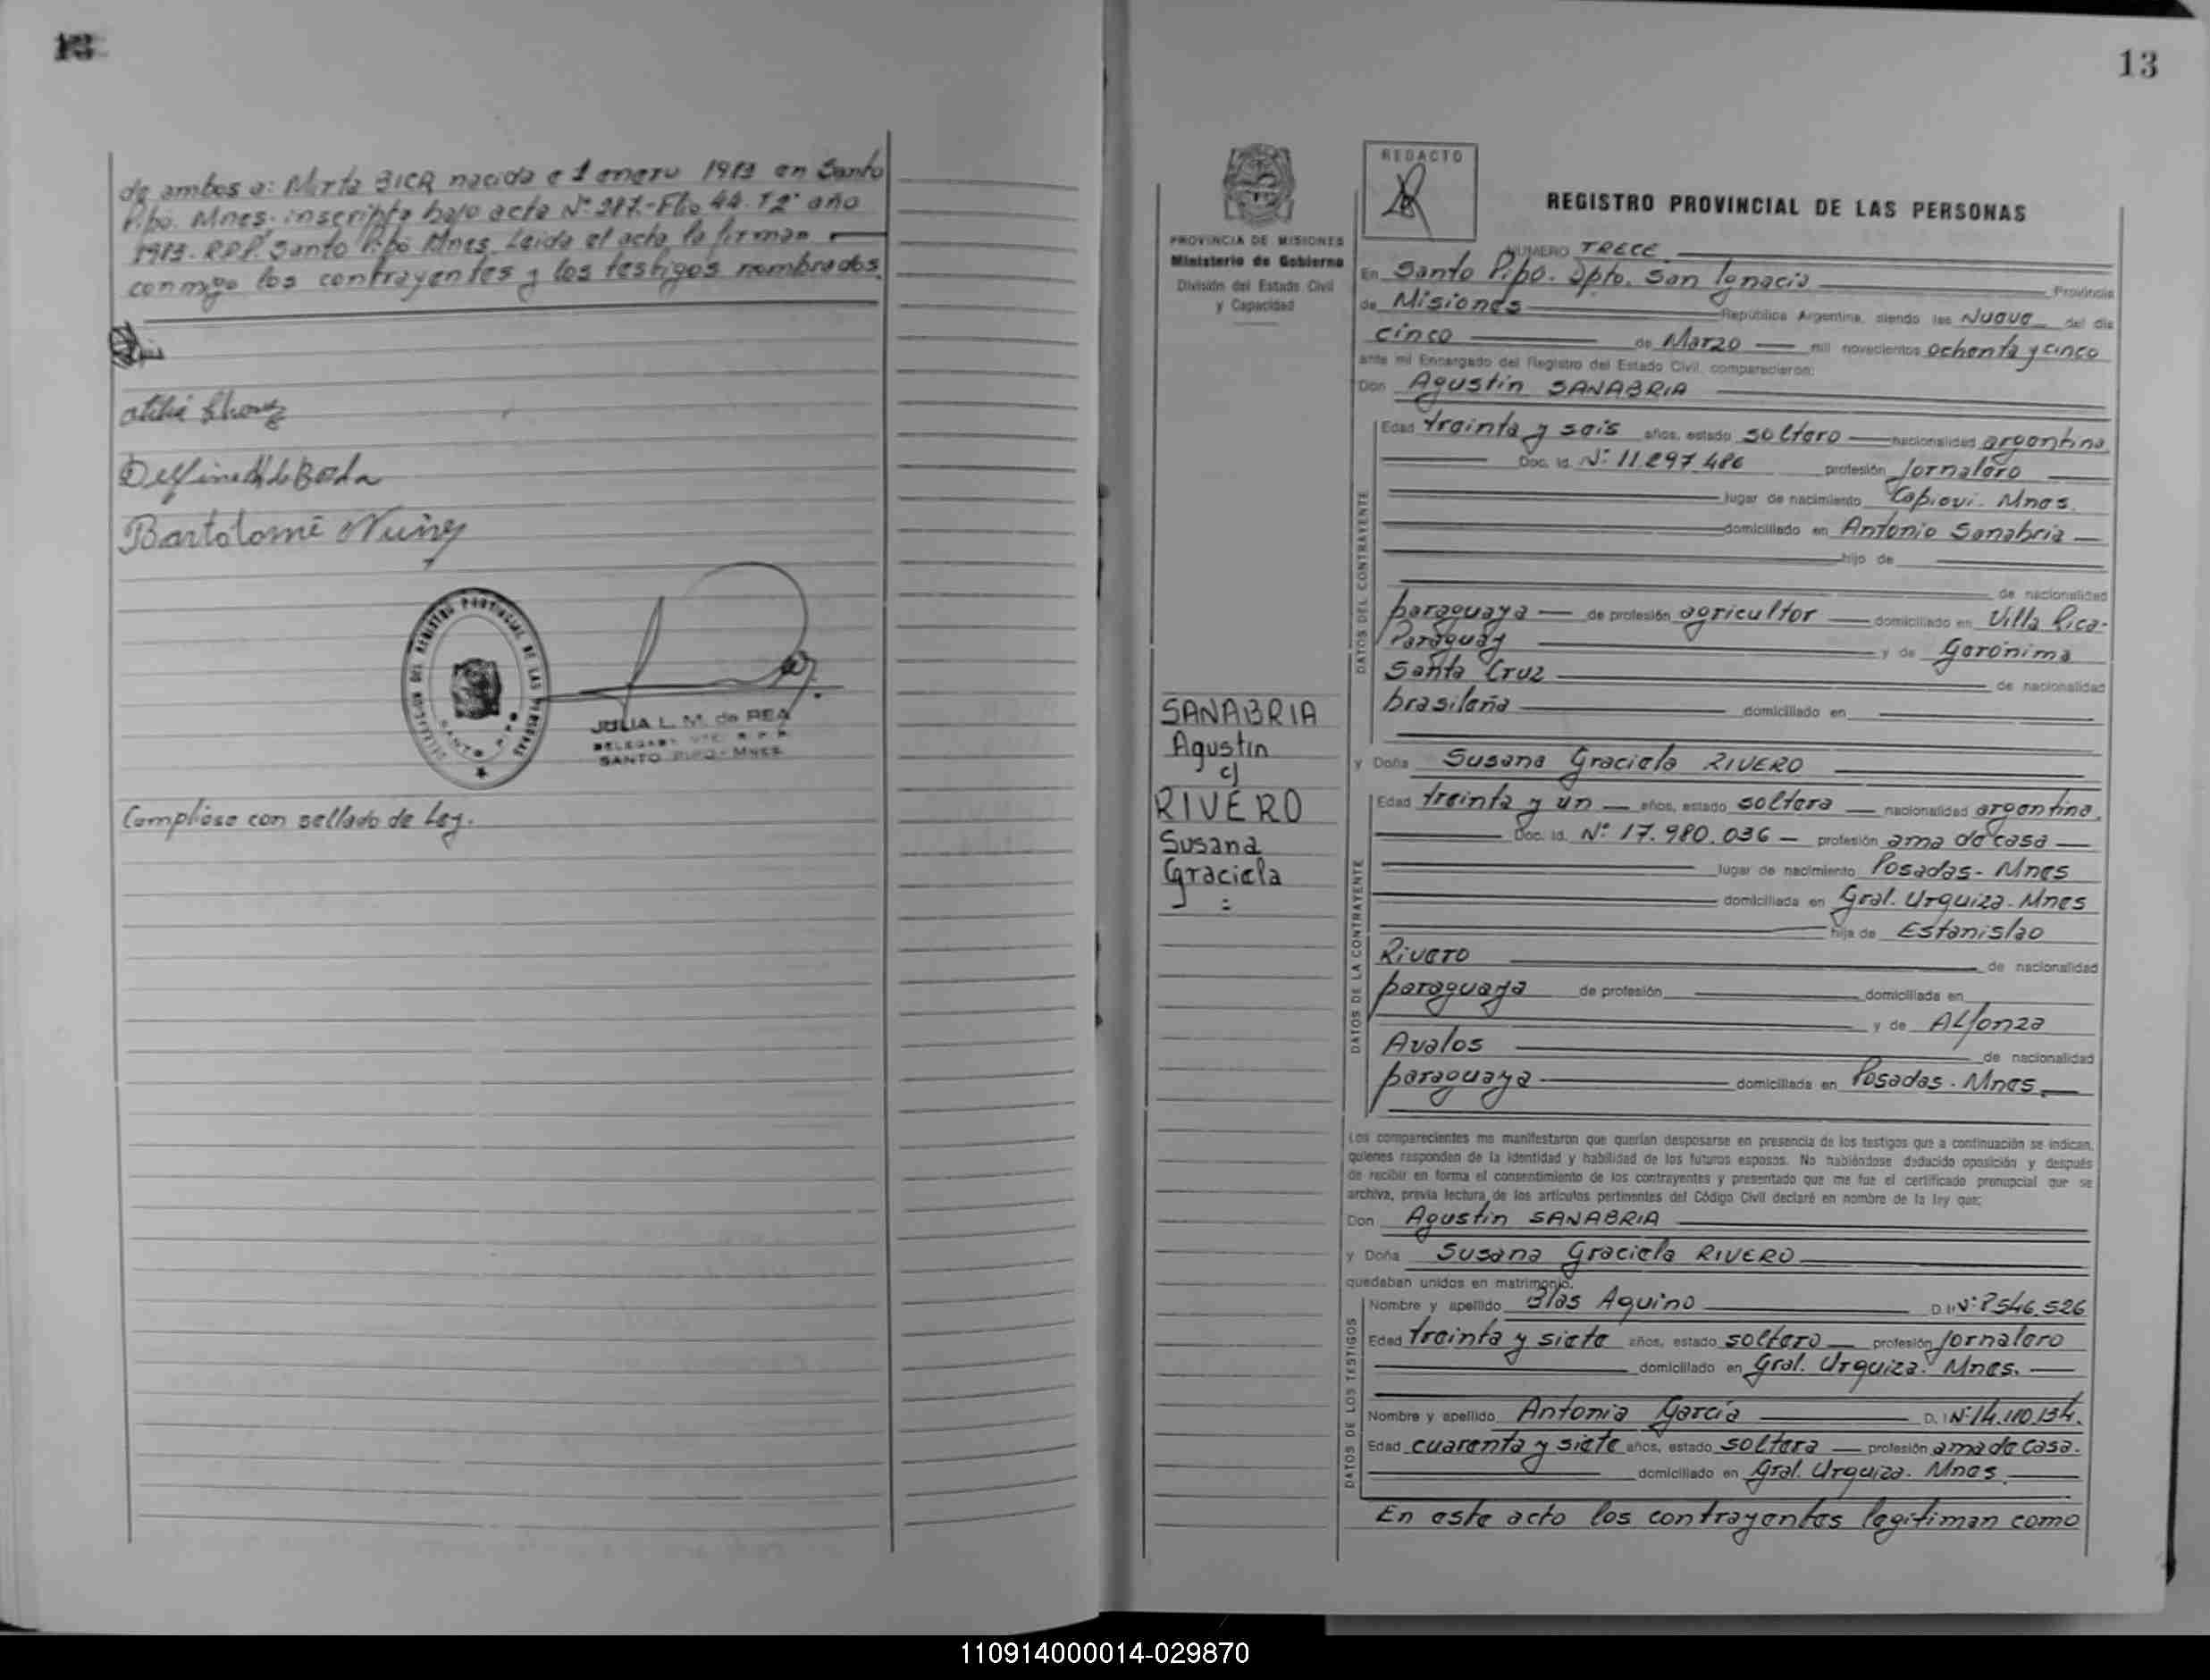 de ambos a: Mirta BICA nacida e 1 enero 1983 en Santo
Pipó. Mnes. inscripta bajo acta Nº 287.-Flio 44. Tº año
1983. R.P.P. Santo Pipó Mnes. Leida el acta la firman
conmigo los contrayentes y los testigos nombrados.
Bartolomé Nuñez
DELEGACION DEL REGISTRO PROVINCIAL DE LAS PERSONAS
SANTO PIPO
JULIA L. M. de REA
SANTO PIPO - MNES.
Cumpliose con sellado de Ley.
13
PROVINCIA DE MISIONES
Ministerio de Gobierno
División del Estado Civil
y Capacidad
SANABRIA
Agustin
c/
RIVERO
Susana
Graciela
REDACTO
REGISTRO PROVINCIAL DE LAS PERSONAS
NUMERO TRECE
En Santo Pipó. Dpto. San Ignacio Provincia
de Misiones República Argentina, siendo las Nueve del día
cinco de Marzo mil novecientos ochenta y cinco
ante mí Encargado del Registro del Estado Civil, comparecieron:
Don Agustin SANABRIA
DATOS DEL CONTRAYENTE
Edad treinta y seis años, estado soltero nacionalidad argentina
Doc. Id. Nº 11.297.486 profesión Jornalero
lugar de nacimiento Capiovi. Mnes.
domiciliado en Antonio Sanabria
hijo de
de nacionalidad
paraguaya de profesión agricultor domiciliado en Villa Rica-
Paraguay y de Gerónima
Santa Cruz de nacionalidad
brasileña domiciliado en
y Doña Susana Graciela RIVERO
DATOS DE LA CONTRAYENTE
Edad treinta y un años, estado soltera nacionalidad argentina.
Doc. Id. Nº 17.980.036 profesión ama de casa
lugar de nacimiento Posadas- Mnes
domiciliada en Gral. Urquiza- Mnes
hija de Estanislao
Rivero de nacionalidad
paraguaya de profesión domiciliada en
y de Alfonza
Avalos de nacionalidad
paraguaya domiciliada en Posadas. Mnes.
Los comparecientes me manifestaron que querían desposarse en presencia de los testigos que a continuación se indican,
quienes responden de la identidad y habilidad de los futuros esposos. No habiéndose deducido oposición y después
de recibir en forma el consentimiento de los contrayentes y presentado que me fue el certificado prenupcial que se
archiva, previa lectura de los artículos pertinentes del Código Civil declaré en nombre de la ley que:
Don Agustin SANABRIA
y Doña Susana Graciela RIVERO
quedaban unidos en matrimonio.
DATOS DE LOS TESTIGOS
Nombre y apellido Blas Aquino D.I. Nº 8546.526
Edad treinta y siete años, estado soltero profesión Jornalero
domiciliado en Gral. Urquiza. Mnes.
Nombre y apellido Antonia García D.I. Nº 14.110.134.
Edad cuarenta y siete años, estado soltera profesión ama de casa.
domiciliado en Gral. Urquiza. Mnes.
En este acto los contrayentes legitiman como
110914000014-029870